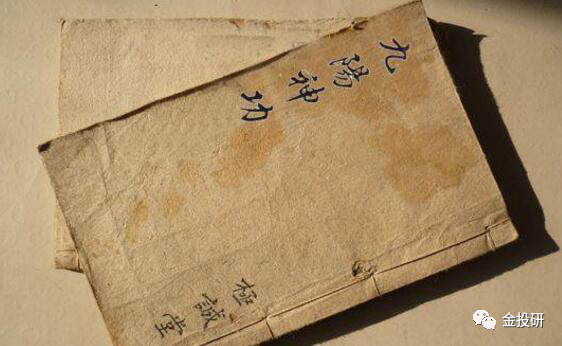 九陽神功
極誠堂
金投研